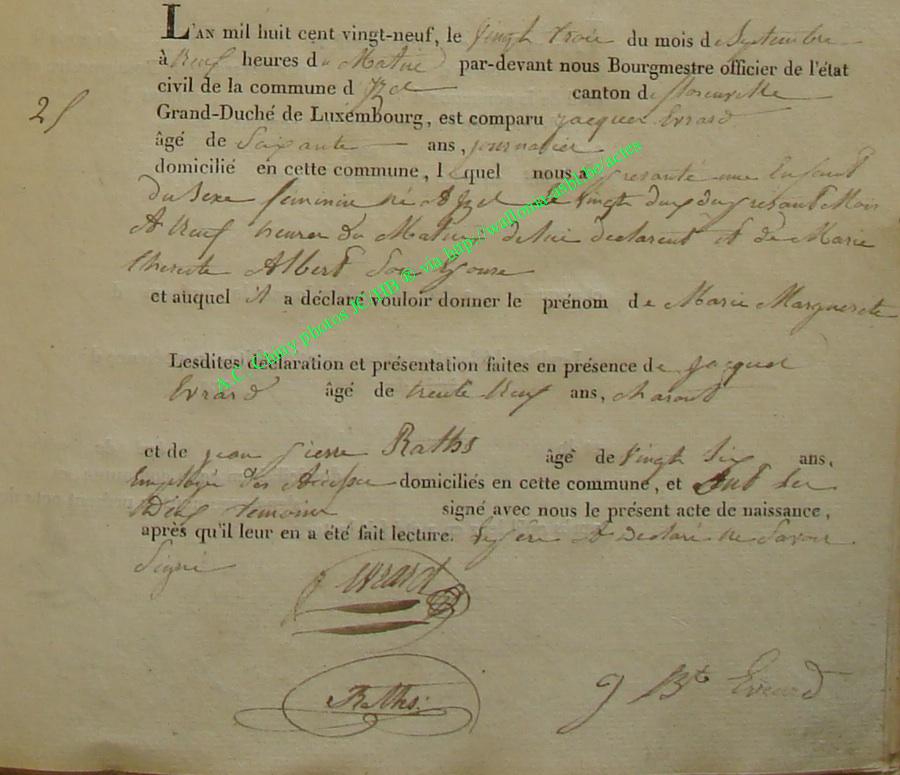 L'AN mil huit cent vingt-neuf, le vingt trois du mois de Septembre
à neuf heures du Matin par-devant nous Bourgmestre officier de l'état
civil de la commune d'Izel canton de florenville
25
Grand-Duché de Luxembourg, est comparu jacques Evrard
âgé de Soixante ans, journalier
domicilié en cette commune, lequel nous a presenté une Enfant
du Sexe feminin né A Izel le vingt du présant Mois
A Neuf heures du Matin de lui declarent et de Marie
therese Albert Son Epouse
et auquel il a déclaré vouloir donner le prénom de Marie Marguerite
A.C. Chiny photos JCHB ® via http://wallonia-asbl.be/actes
Lesdites déclaration et présentation faites en présence de jacques
Evrard âgé de trente Neuf ans, charont
et de jean pierre Raths âgé de vingt Six ans,
Employé des domiciliés en cette commune, et ont les
deux temoins signé avec nous le présent acte de naissance,
après qu'il leur en a été fait lecture. Le père A Declaré ne Savoir
Signé
Evrard
Raths
j Bte Evrard